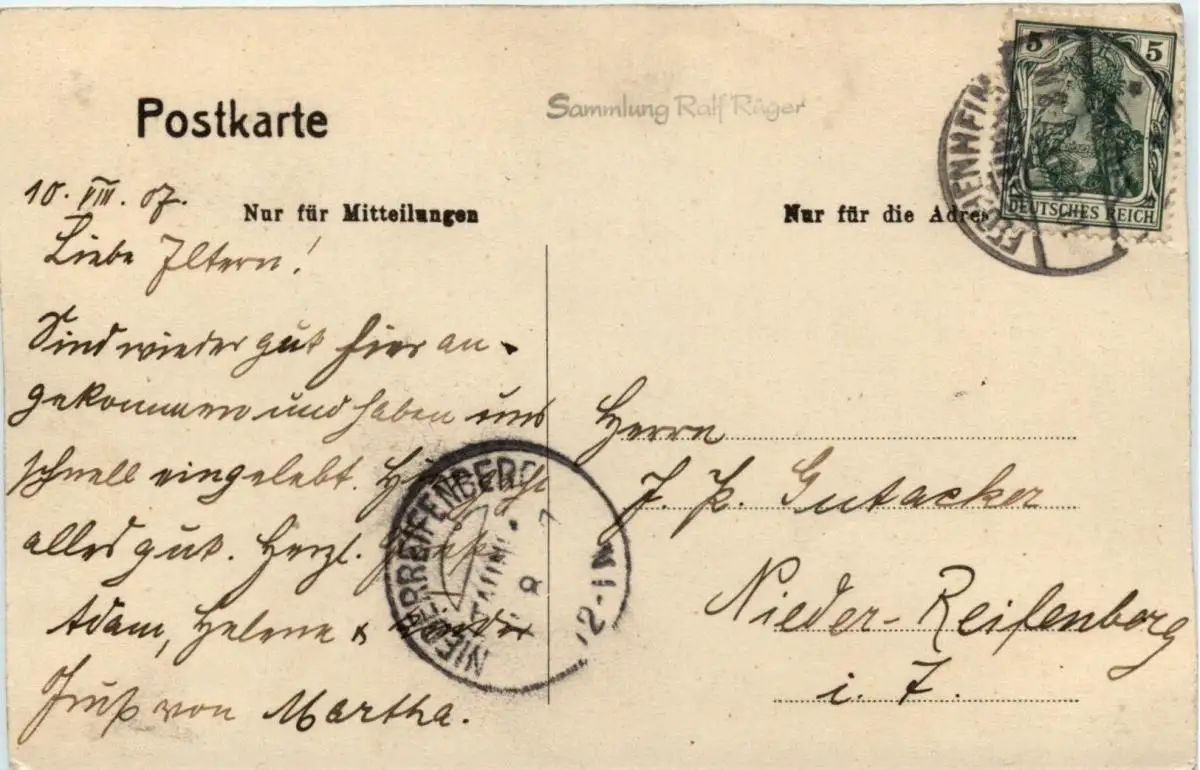 Postkarte
Sammlung Ralf Rüger
5 5
DEUTSCHES REICH
Nur für Mitteilungen
Nur für die Adres
10. VIII. 07.
Liebe Eltern!
Sind wieder gut hier an-
gekommen und haben uns
schnell eingelebt. geht
alles gut. Herzl.
Adam, Helene &
Gruß von Martha.
Herrn
J. P. Gutacker
Nieder-Reifenberg
i. T.
NIEDERREIFENBERG
(TAUNUS)
8
12-1N